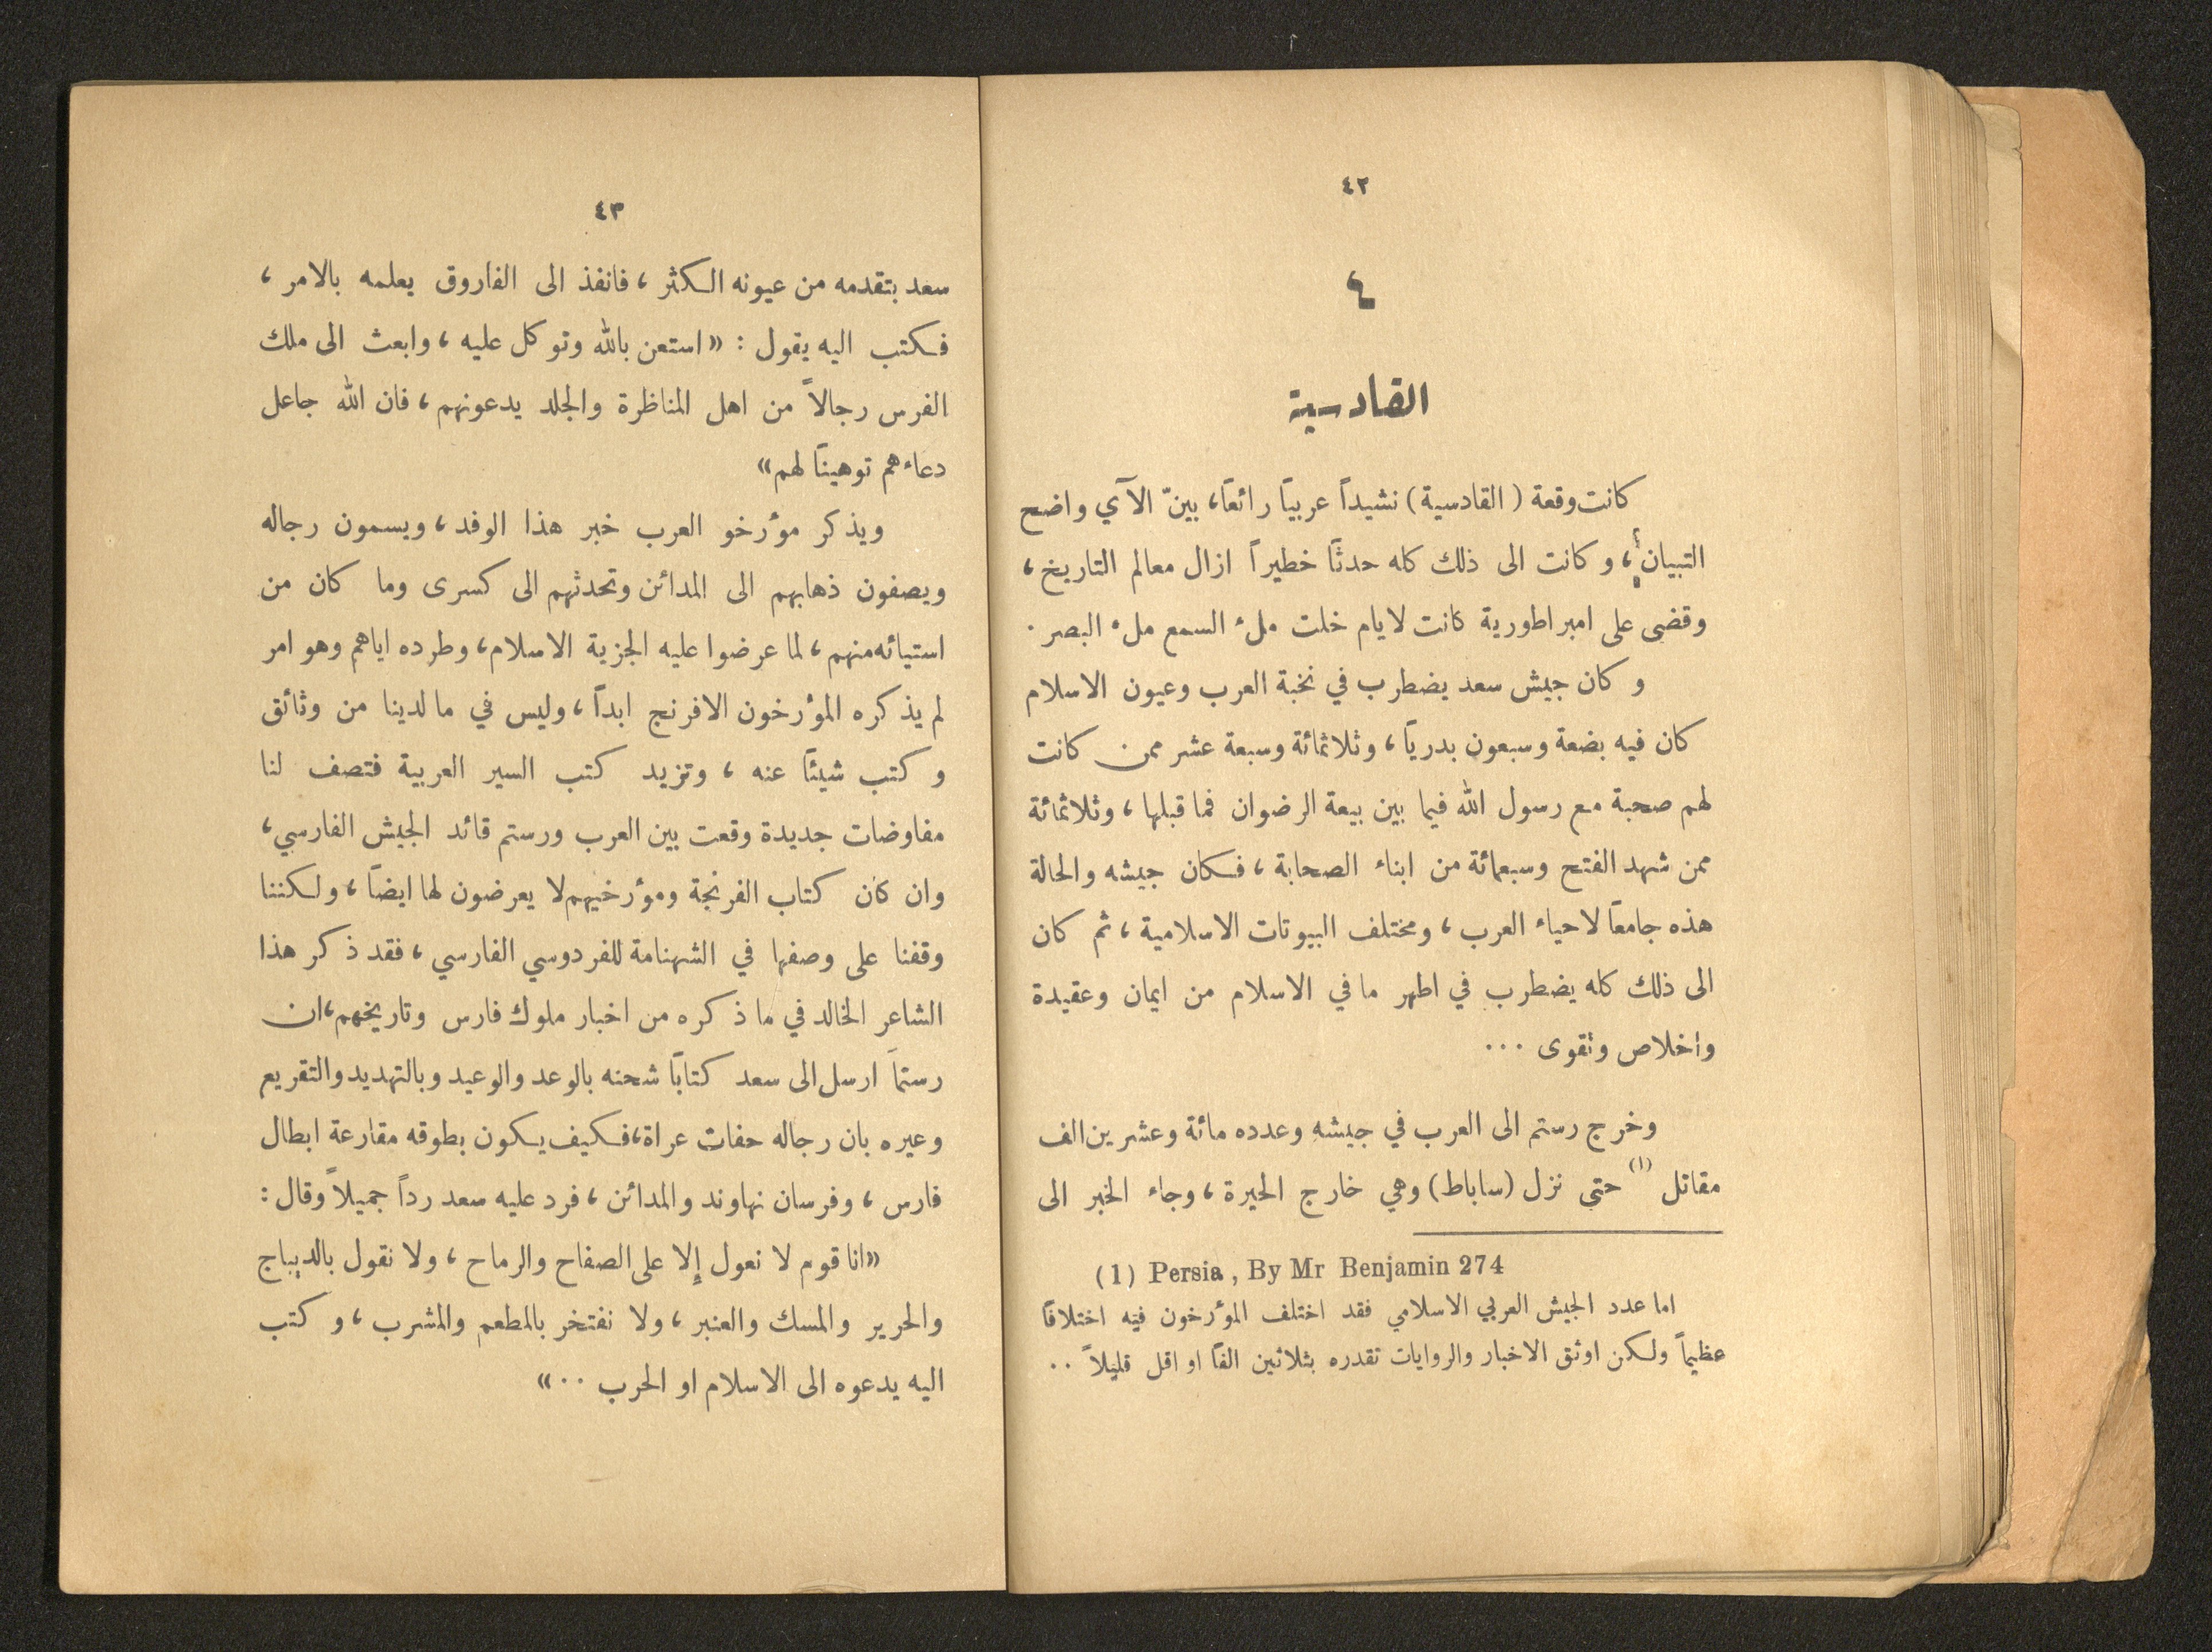 ٤٢
٤
القادسية
كانت وقعة (القادسية) نشيداً عربياً رائعاً، بينّ الآي واضح
التبيان، وكانت الى ذلك كله حدثاً خطيراً ازال معالم التاريخ،
وقضى على امبراطورية كانت لايام خلت ملء السمع ملء البصر.
وكان جيش سعد يضطرب في نخبة العرب وعيون الاسلام
كان فيه بضعة وسبعون بدرياً، وثلاثمائة وسبعة عشر ممن كانت
لهم صحبة مع رسول الله فيما بين بيعة الرضوان فما قبلها، وثلاثمائة
ممن شهد الفتح وسبعمائة من ابناء الصحابة، فكان جيشه والحالة
هذه جامعاً لاحياء العرب، ومختلف البيوتات الاسلامية، ثم كان
الى ذلك كله يضطرب في اطهر ما في الاسلام من ايمان وعقيدة
واخلاص وتقوى ...
وخرج رستم الى العرب في جيشه وعدده مائة وعشرين الف
مقاتل (١) حتى نزل (ساباط) وهي خارج الحيرة، وجاء الخبر الى
(1) Persia, By Mr Benjamin 274
اما عدد الجيش العربي الاسلامي فقد اختلف المؤرخون فيه اختلافاً
عظيماً ولكن اوثق الاخبار والروايات تقدره بثلاثين الفاً او اقل قليلاً ..
٤٣
سعد بتقدمه من عيونه الكثر، فانفذ الى الفاروق يعلمه بالامر،
فكتب اليه يقول: «استعن بالله وتوكل عليه، وابعث الى ملك
الفرس رجالاً من اهل المناظرة والجلد يدعونهم، فان الله جاعل
دعاءهم توهيناً لهم»
ويذكر مؤرخو العرب خبر هذا الوفد، ويسمون رجاله
ويصفون ذهابهم الى المدائن وتحدثهم الى كسرى وما كان من
استيائه منهم، لما عرضوا عليه الجزية الاسلام، وطرده اياهم وهو امر
لم يذكره المؤرخون الافرنج ابداً، وليس في ما لدينا من وثائق
وكتب شيئاً عنه، وتزيد كتب السير العربية فتصف لنا
مفاوضات جديدة وقعت بين العرب ورستم قائد الجيش الفارسي،
وان كان كتاب الفرنجة ومؤرخيهم لا يعرضون لها ايضاً، ولكننا
وقفنا على وصفها في الشهنامة للفردوسي الفارسي، فقد ذكر هذا
الشاعر الخالد في ما ذكره من اخبار ملوك فارس وتاريخهم، ان
رستماً ارسل الى سعد كتاباً شحنه بالوعد والوعيد وبالتهديد والتقريع
وعيره بان رجاله حفات عراة، فكيف يكون بطوقه مقارعة ابطال
فارس، وفرسان نهاوند والمدائن، فرد عليه سعد رداً جميلاً وقال:
«انا قوم لا نعول إلا على الصفاح والرماح، ولا نقول بالديباج
والحرير والمسك والعنبر، ولا نفتخر بالمطعم والمشرب، وكتب
اليه يدعوه الى الاسلام او الحرب ..»